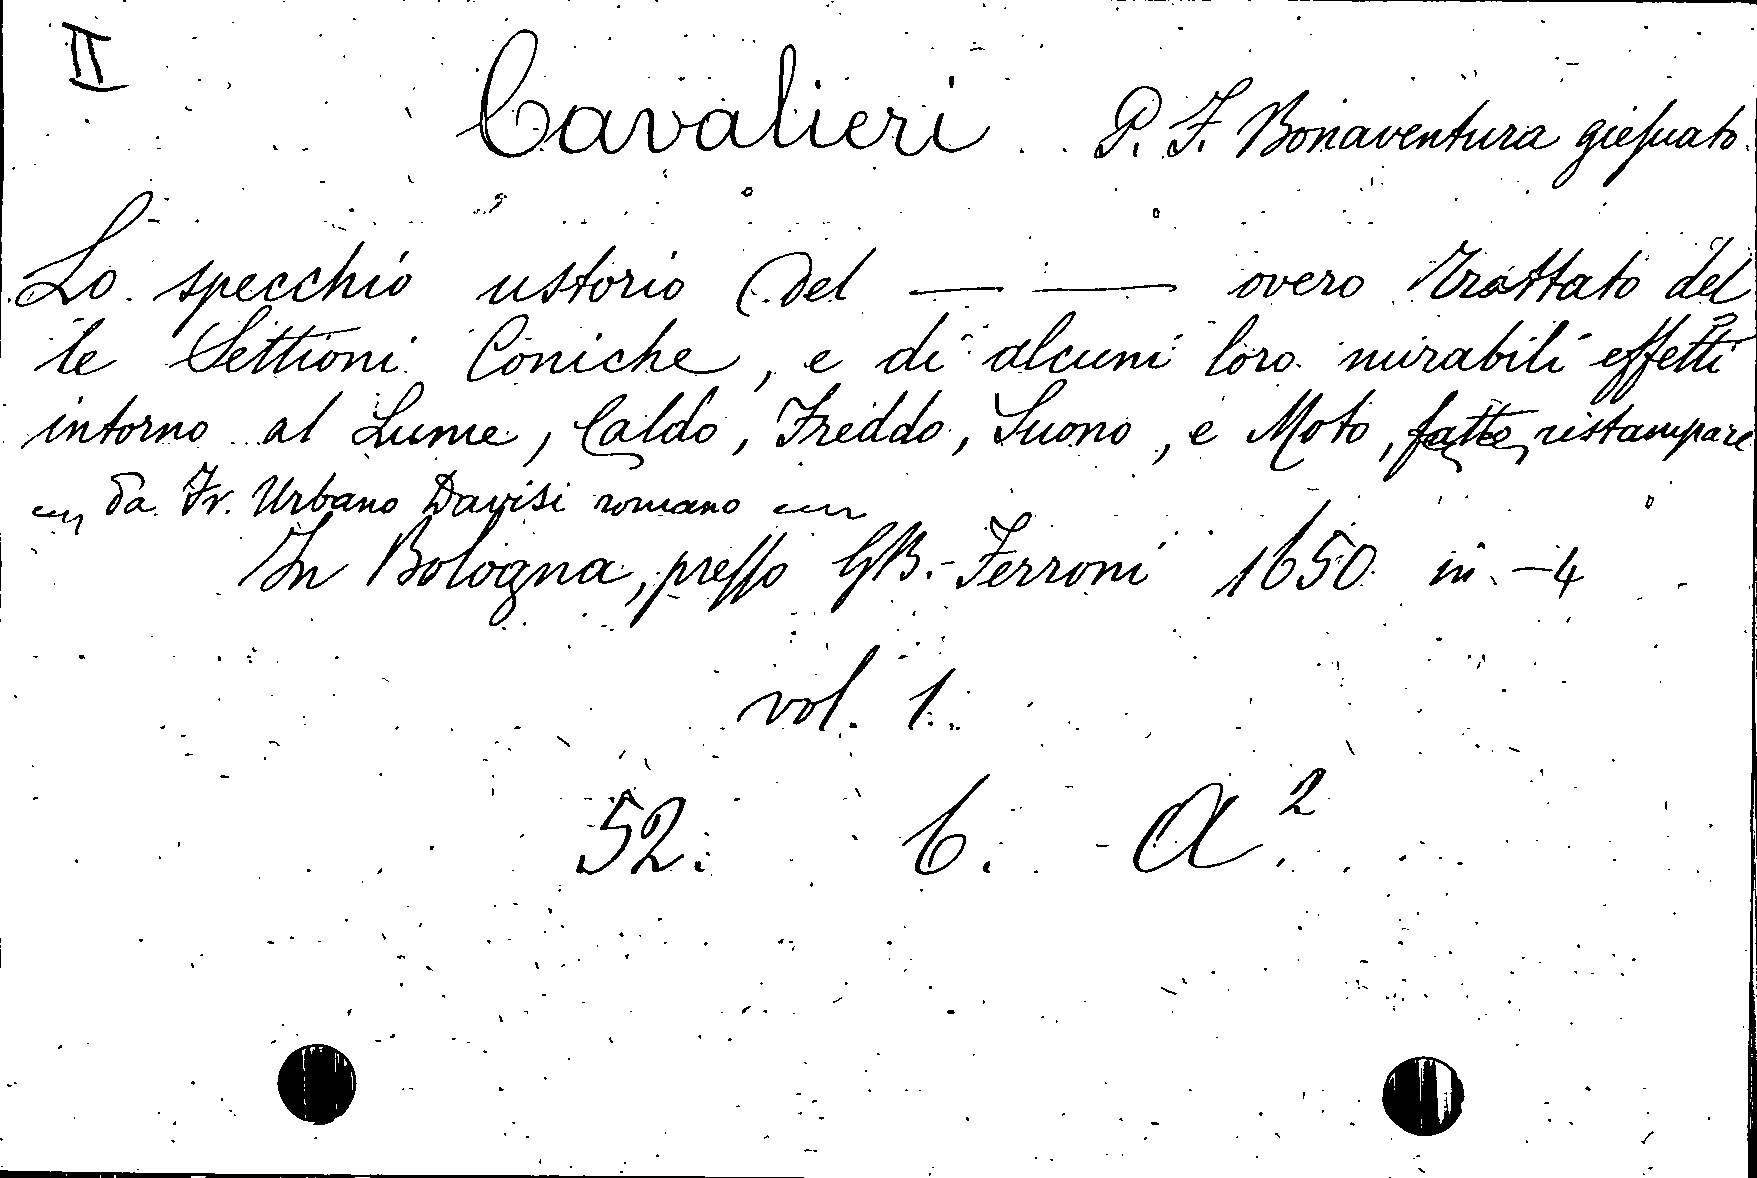 II
Cavalieri P. F. Bonaventura gieſuato
Lo specchio ustorio del — — overo trattato del
le Settioni Coniche, e di alcuni loro mirabili effetti
intorno al Lume, Caldo, Freddo, Suono, e Moto, fatto ristampare
da Fr. Urbano Davisi romano
In Bologna, preſſo GB. Ferroni 1650 in-4
vol. 1.
52. 6. a²